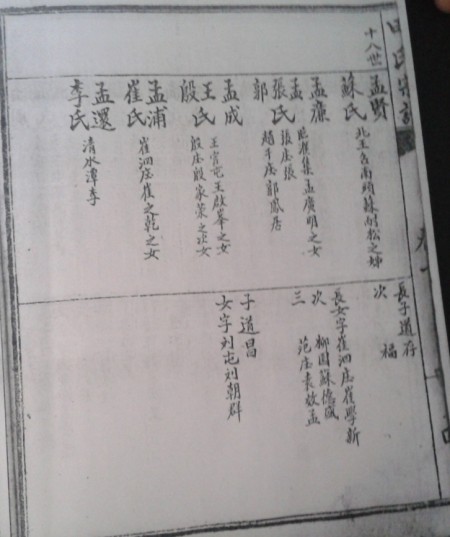 田氏宗譜
卷一
十八世
孟賢
蘇氏 北王台南頭蘇耐松之姊
孟廉
孟 臨產集孟廣明之女
張氏 張庄張
郭 趙平庄郭鳳居
孟成
王氏 王官屯王啟峯之女
殷 殷庄殷家榮之女
孟浦
崔氏 崔泗庄崔之乾之女
孟還
李氏 清水潭李
長子道存
次 福
長女字崔泗庄崔學新
次 柳園蘇德盛
三 范庄袁效孟
子道昌
女字刘屯刘朝群